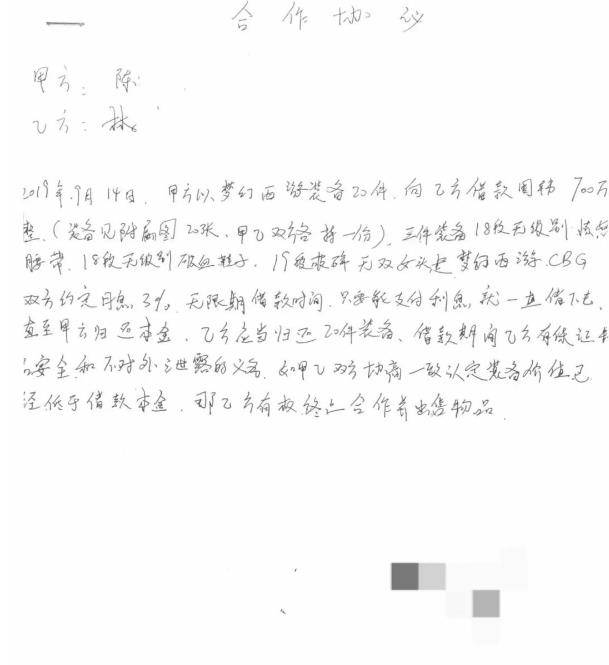 合作协议
甲方：陈
乙方：林
2019年9月14日，甲方以梦幻西游装备20件，向乙方借款 700万
整，（装备见附属图20张，甲乙双方各持一份），三件装备18段无级别
腰带，18段无级别破血鞋子，19段 无双女头是梦幻西游CBG
双方约定月息3%，无限期借款时间，只要能支付利息，就一直借下去，
直至甲方归还本金，乙方应当归还20件装备，借款期间乙方有保证
安全和不对外泄露的义务，如甲乙双方协商一致认定装备价值已
经低于借款本金，那乙方有权终止合作并出售物品